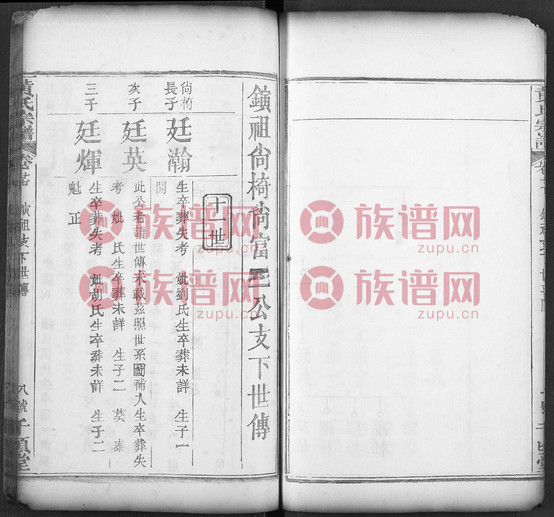 鎮祖尙椅尙富二公支下世傳
十世
尙椅長子
廷瀚
生卒葬失考 妣劉氏生卒葬未詳 生子一
開
次子
廷英
此公老譜世傳未載茲照世系圖補入生卒葬失
考 妣 氏生卒葬未詳 生子二 英 泰
三子
廷煇
生卒葬失考 妣胡氏生卒葬未詳 生子二
魁 正
黃氏宗譜
鎮祖支下世傳
八號
千頃堂
族谱网
zupu.cn
族谱网
zupu.cn
族谱网
zupu.cn
族谱网
zupu.cn